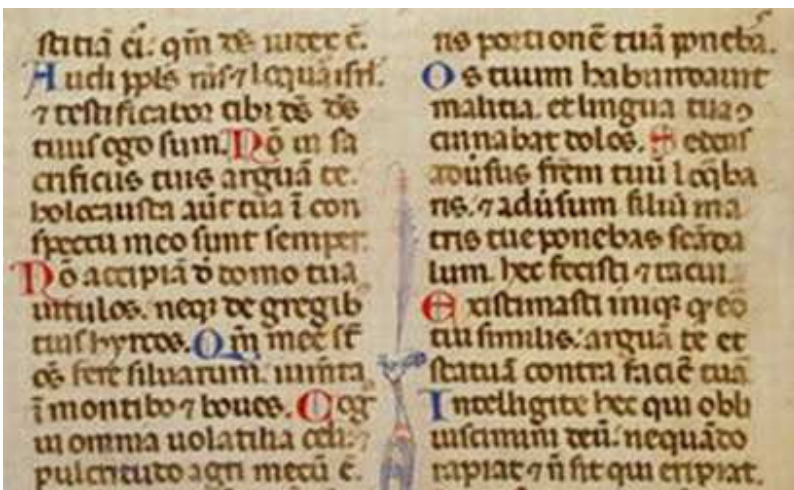 stitiā ei: qm̄ ds̄ iudex ē.
Audi ppl̄s m̄s ⁊ loquā isrl̄.
⁊ testificabor tibi ds̄ ds̄
tuus ego sum. Nō in sa
crificiis tuis arguā te.
holocausta aūt tua ī con
spectu meo sunt semper.
Nō accipiā d̄ domo tua
uitulos. neqꝫ de gregib
tuis hyrcos. Qm̄ mee st̄
oēs fere siluarum. iumta
ī montibꝫ ⁊ boues. Cog
ui omnia uolatilia celi: ⁊
pulcritudo agri mecū ē.
ris portionē tuā ponebas.
Os tuum habundauit
malitia. et lingua tua ↄ
cinnabat dolos. Sedens
aduersus frēm tuū loq̄ba
ris. ⁊ adūsum filiū ma
tris tue ponebas scāda
lum. hec fecisti ⁊ tacui.
Existimasti iniqꝫ qꝫ eō
tui similis: arguā te et
statuā contra faciē tuā.
Intelligite hec qui obli
uiscimini deū. nequādo
rapiat ⁊ n̄ sit qui eripiat.